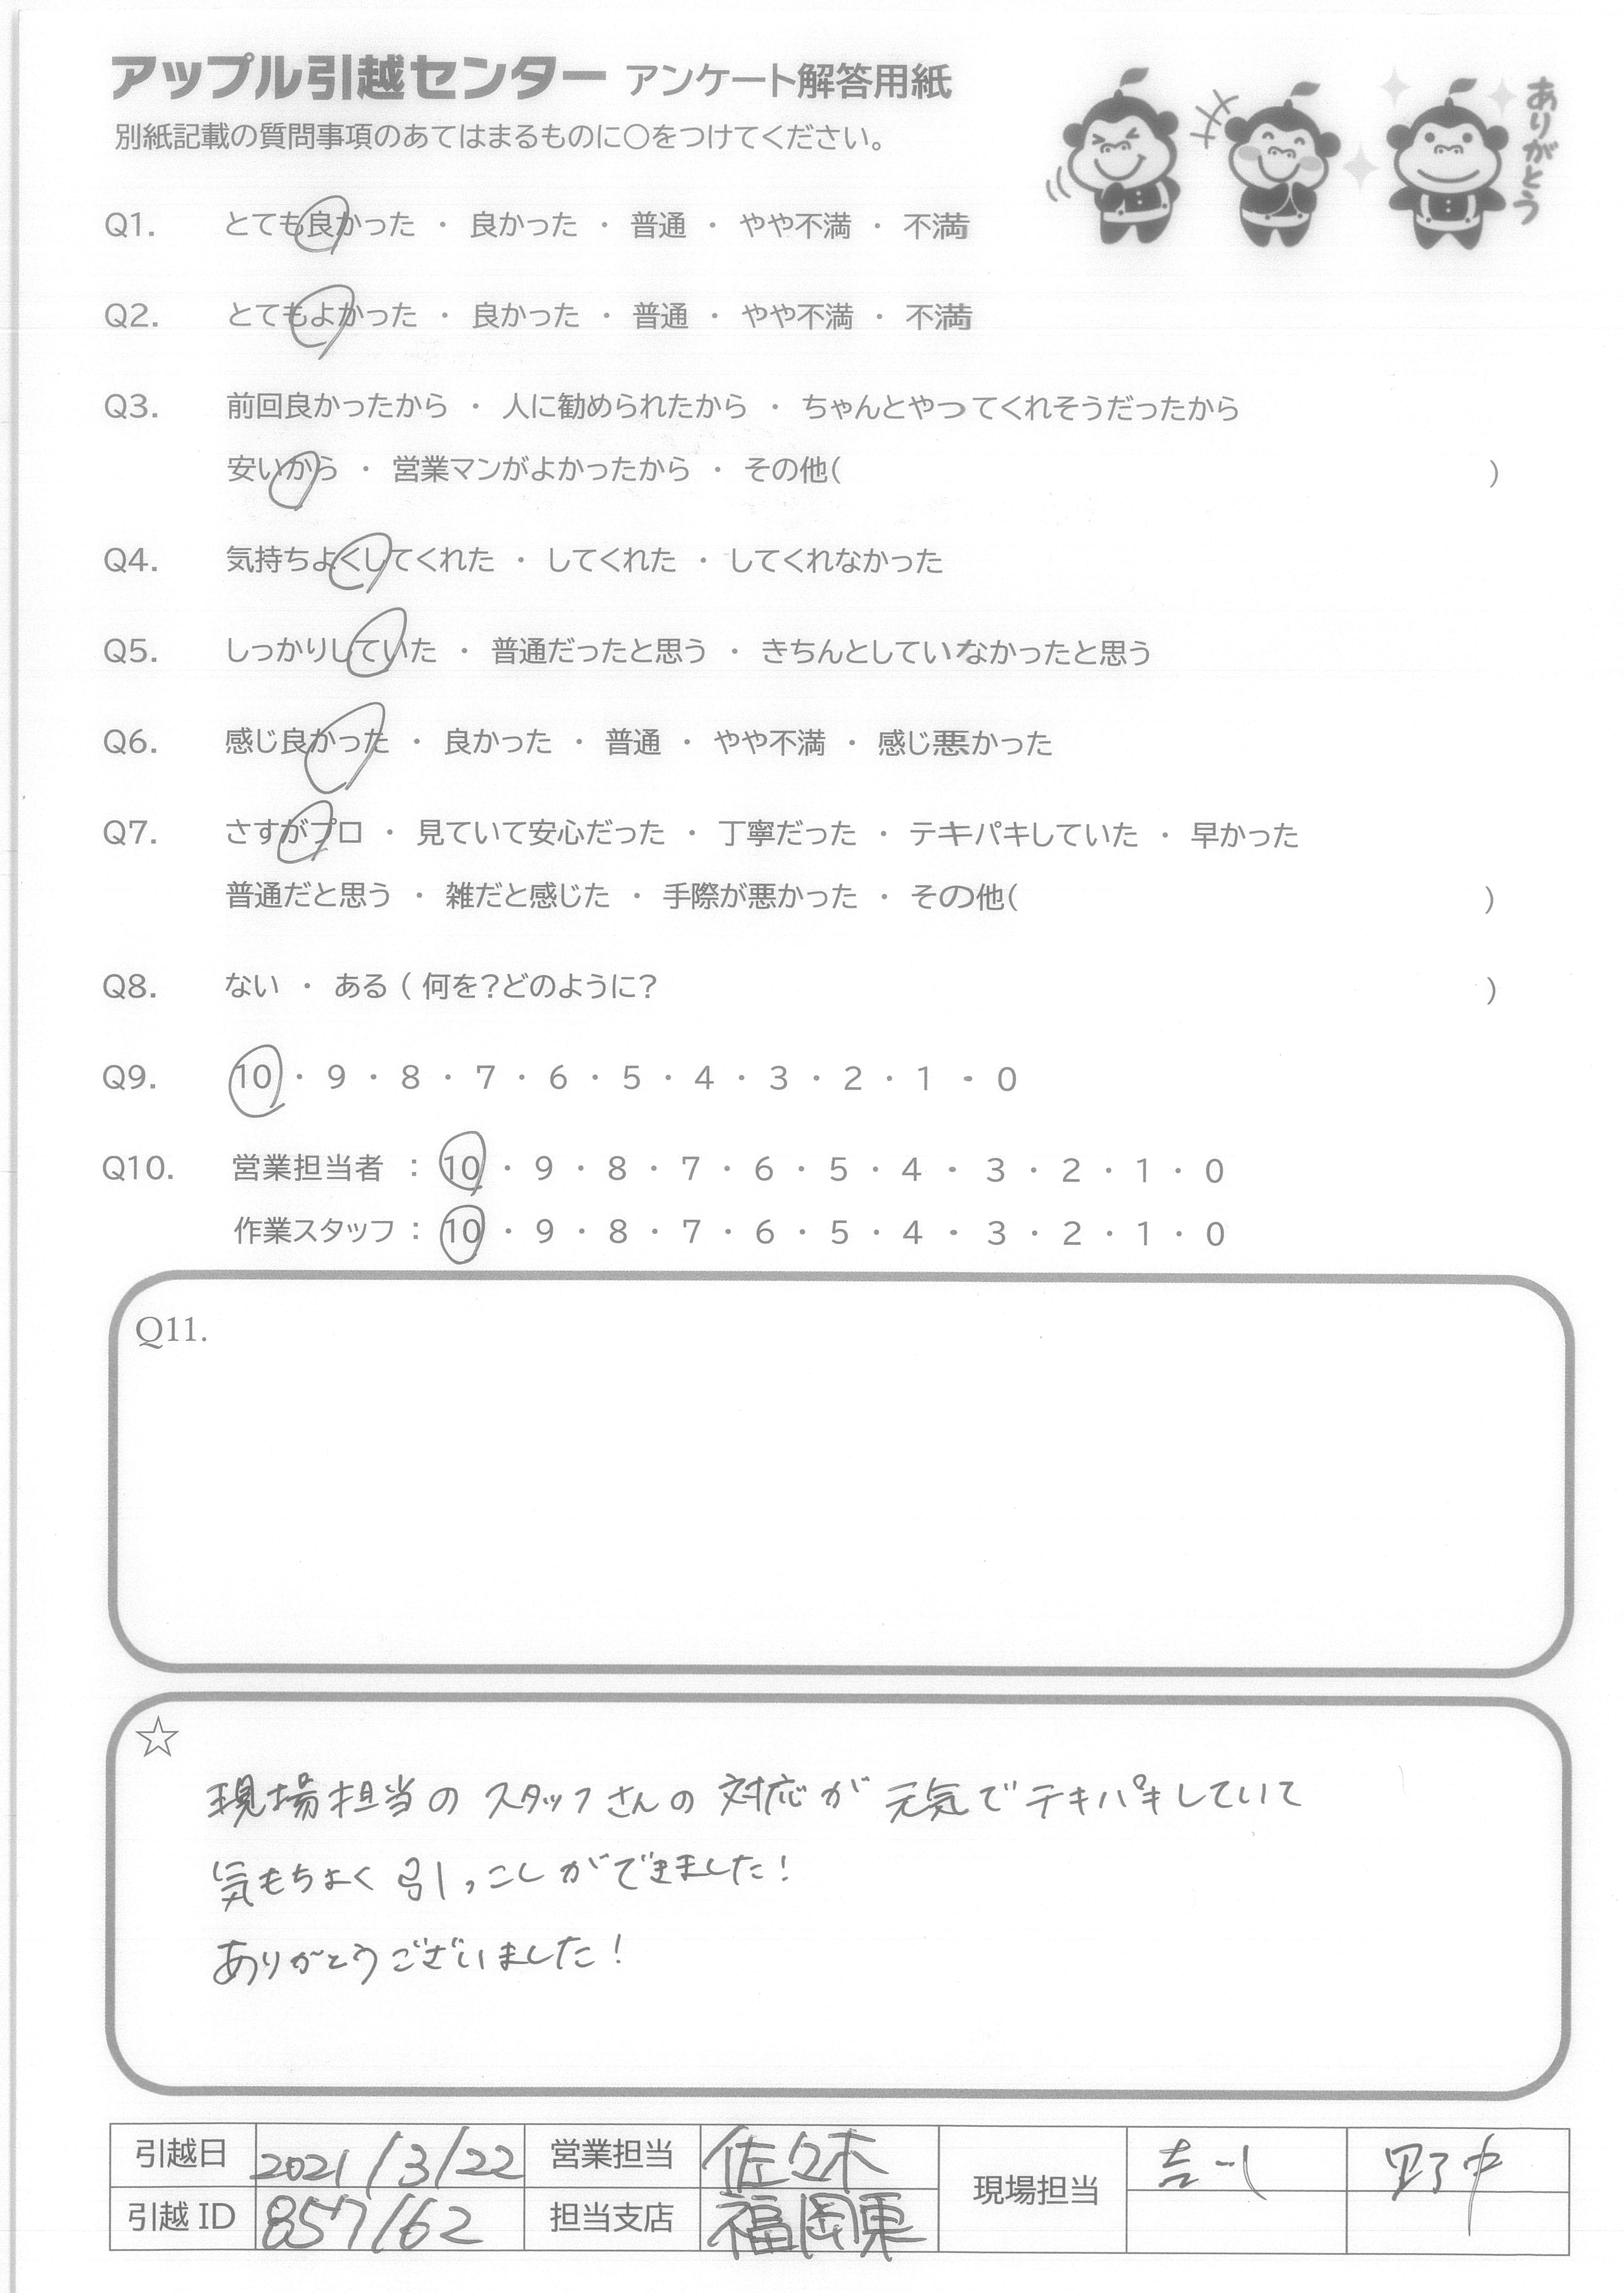 アップル引越センター アンケート解答用紙
ありがとう
別紙記載の質問事項のあてはまるものに○をつけてください。
Q1. とても良かった ・ 良かった ・ 普通 ・ やや不満 ・ 不満
Q2. とてもよかった ・ 良かった ・ 普通 ・ やや不満 ・ 不満
Q3. 前回良かったから ・ 人に勧められたから ・ ちゃんとやってくれそうだったから
安いから ・ 営業マンがよかったから ・ その他( )
Q4. 気持ちよくしてくれた ・ してくれた ・ してくれなかった
Q5. しっかりしていた ・ 普通だったと思う ・ きちんとしていなかったと思う
Q6. 感じ良かった ・ 良かった ・ 普通 ・ やや不満 ・ 感じ悪かった
Q7. さすがプロ ・ 見ていて安心だった ・ 丁寧だった ・ テキパキしていた ・ 早かった
普通だと思う ・ 雑だと感じた ・ 手際が悪かった ・ その他( )
Q8. ない ・ ある ( 何を?どのように? )
Q9. 10 ・ 9 ・ 8 ・ 7 ・ 6 ・ 5 ・ 4 ・ 3 ・ 2 ・ 1 ・ 0
Q10. 営業担当者 : 10 ・ 9 ・ 8 ・ 7 ・ 6 ・ 5 ・ 4 ・ 3 ・ 2 ・ 1 ・ 0
作業スタッフ : 10 ・ 9 ・ 8 ・ 7 ・ 6 ・ 5 ・ 4 ・ 3 ・ 2 ・ 1 ・ 0
Q11.
☆
現場担当の スタッフさんの 対応が 元気で テキパキしていて
気もちよく 引っこしができました!
ありがとうございました!
引越日 2021/3/22 営業担当 佐々木 現場担当 野中
引越ID 857162 担当支店 福岡東